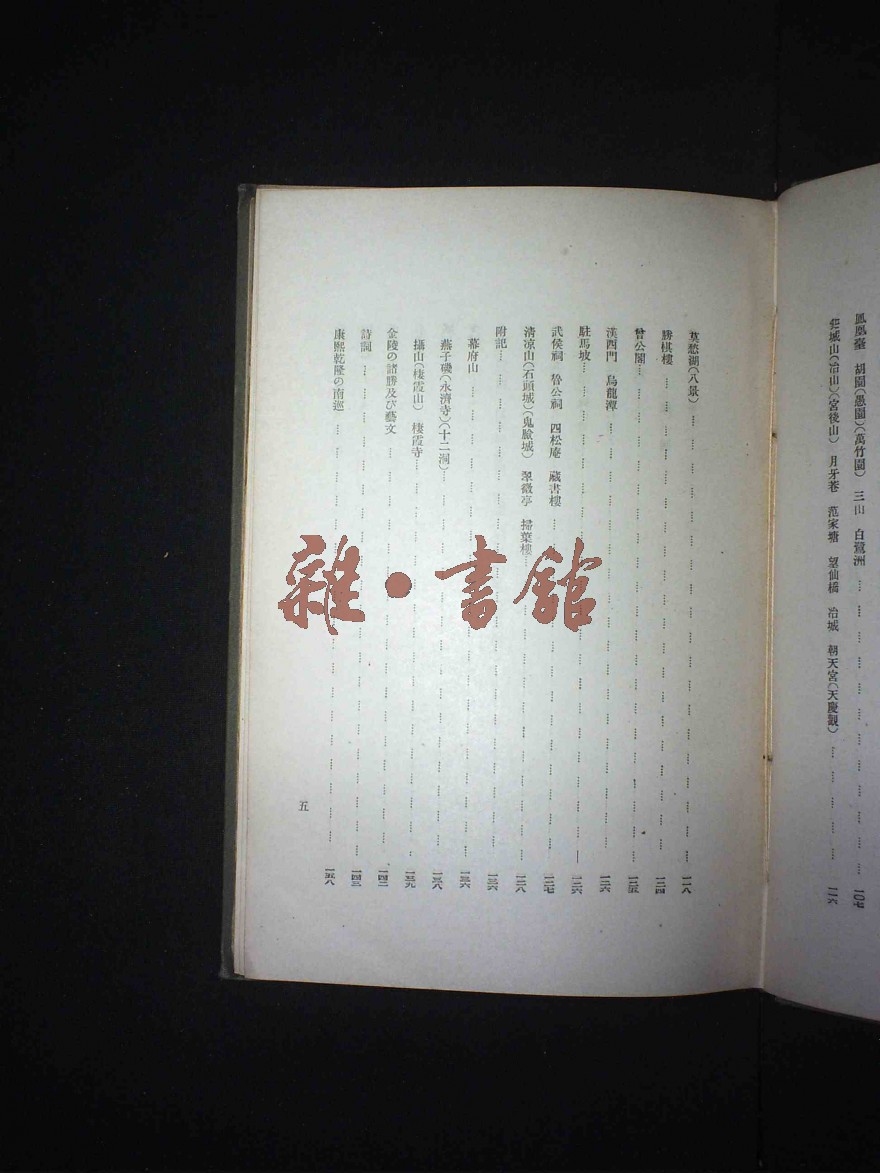 鳳凰臺 胡園(愚園)(萬竹園) 三山 白鷺洲 …… 一〇七
冶城山(冶山)(宮後山) 月牙巷 范家塘 望仙橋 冶城 朝天宮(天慶觀) …… 一一六
莫愁湖(八景) …… 一一八
勝棋樓 …… 一二四
曾公閣 …… 一二五
漢西門 烏龍潭 …… 一二六
駐馬坡 …… 一二六
武侯祠 魯公祠 四松庵 藏書樓 …… 一二七
淸凉山(石頭城)(鬼臉城) 翠微亭 掃葉樓 …… 一二八
附記 …… 一三六
幕府山 …… 一三六
燕子磯(永濟寺)(十二洞) …… 一三八
攝山(棲霞山) 棲霞寺 …… 一三九
金陵の諸勝及び藝文 …… 一四二
詩詞 …… 一四三
康熙乾隆の南巡 …… 一五八
五
雜·書館